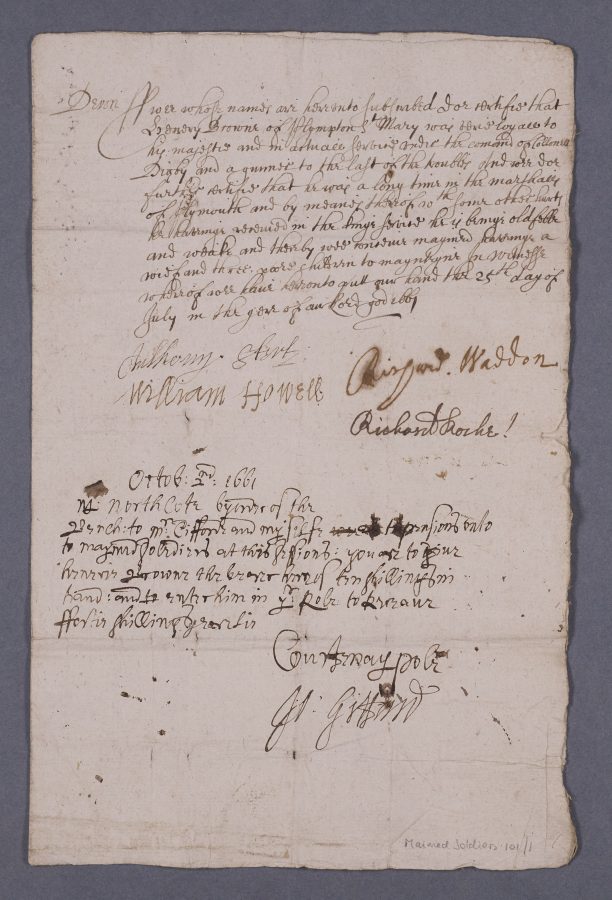 Devon Wee whose names are hereunto subscribed doe certifie that
Henery Browne of Plympton St Mary was verie loyale to
his majestie and in actuall service under the comand of Collonell
Digby and a gunner to the last of the troubles and wee doe
further certifie that he was a long time in the marshalls
of Plymouth and by meanes thereof wth some other hurts
he haveinge received in the kings service he is beinge old feble
and weake and thereby wee conseive maymed haveinge a
wief and three poore children to maynteyne In wittnesse
whereof wee have hereonto putt our hand the 25th day of
July in the yere of our Lord god 1661
Anthony Stert
Richard Waddon
William Howell
Richard Roche
Octob: 2d: 1661
Mr Northcote by order of the
Bench: to Mr Gifford and my selfe to
to maymed soldiers at this sessions: you are to give
henerie Browne the bearer hereof ten shillings in
hand: and to enter him in yr Role to Receave
ffortie shillings yearelie
Courtenay Pole
Jo: Giffard
Maimed Soldiers 101/1